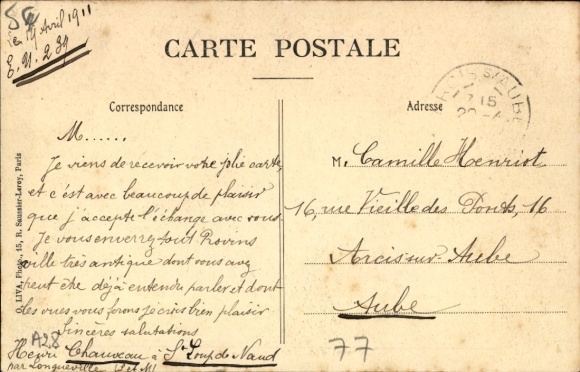 56
le 19 Avril 1911
E. N. 2 39
CARTE POSTALE
Correspondance
Adresse
M......
Je viens de recevoir votre jolie carte,
et c'est avec beaucoup de plaisir
que j'accepte l'échange avec vous
Je vous enverrez tout Provins
ville très antique dont vous avez
peut être déjà entendu parler et dont
les vues vous ferons je crois bien plaisir
Sincères salutations
Henri Chauveau à St Loup de Naud
par Longueville (S et M)
A28
M. Camille Henriot
16, rue Vieille des Ponts, 16
Arcis sur Aube
Aube
77
ARCIS S/AUBE
15
LIVA, Photo. 15, R. Saussier-Leroy, Paris